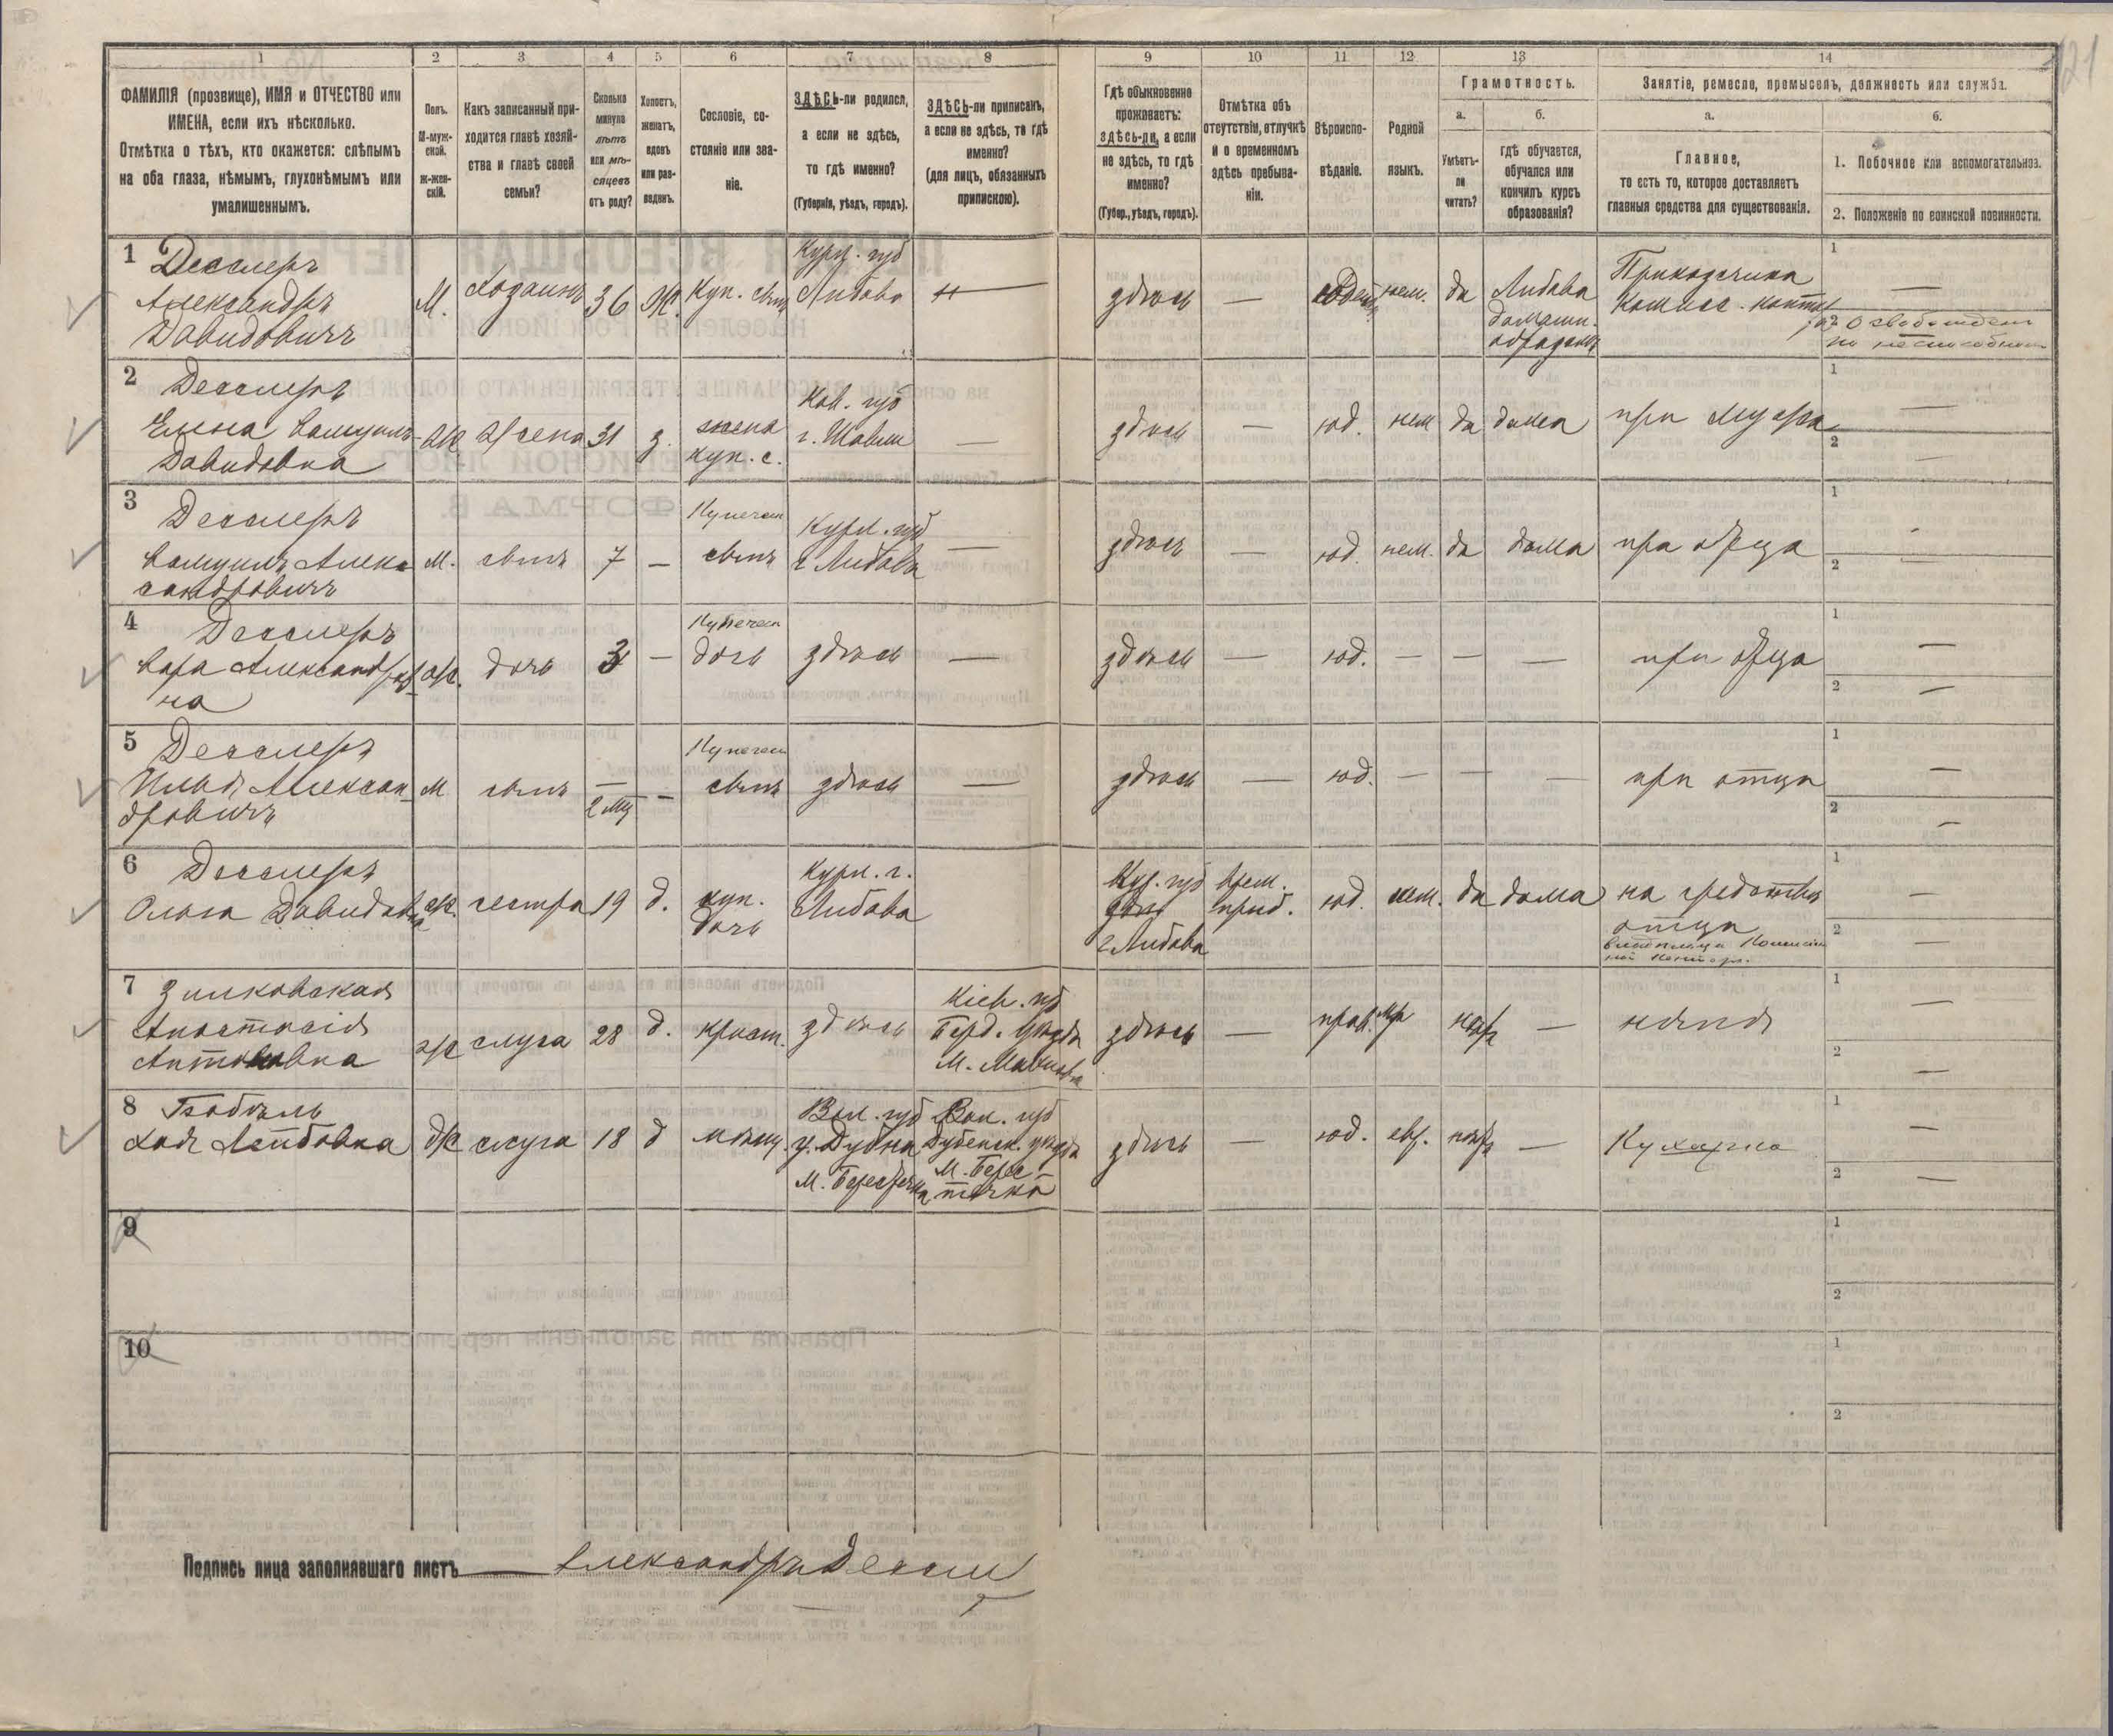 121
1 2 3 4 5 6 7 8 9 10 11 12 13 14
ФАМИЛІЯ (прозвище), ИМЯ и ОТЧЕСТВО или
ИМЕНА, если ихъ нѣсколько.
Отмѣтка о тѣхъ, кто окажется: слѣпымъ
на оба глаза, нѣмымъ, глухонѣмымъ или
умалишеннымъ.
Полъ.
М-муж-
ской.
ж-жен-
скій.
Какъ записанный при-
ходится главѣ хозяй-
ства и главѣ своей
семьи?
Сколько
минуло
лѣтъ
или мѣ-
сяцевъ
отъ роду?
Холостъ,
женатъ,
вдовъ
или раз-
веденъ.
Сословіе, со-
стояніе или зва-
ніе.
ЗДѢСЬ-ли родился,
а если не здѣсь,
то гдѣ именно?
(Губернія, уѣздъ, городъ).
ЗДѢСЬ-ли приписанъ,
а если не здѣсь, то гдѣ
именно?
(для лицъ, обязанныхъ
припискою).
Гдѣ обыкновенно
проживаетъ:
здѣсь-ли, а если
не здѣсь, то гдѣ
именно?
(Губер., уѣздъ, городъ).
Отмѣтка объ
отсутствіи, отлучкѣ
и о временномъ
здѣсь пребыва-
ніи.
Вѣроиспо-
вѣданіе.
Родной
языкъ.
Грамотность.
а.
Умѣетъ-
ли
читать?
б.
гдѣ обучается,
обучался или
кончилъ курсъ
образованія?
Занятіе, ремесло, промыселъ, должность или служба.
а.
Главное,
то есть то, которое доставляетъ
главныя средства для существованія.
б.
1. Побочное или вспомогательное.
2. Положеніе по воинской повинности.
1 Десслеръ
Александръ
Давидовичъ
М.
Хозяинъ
36
Ж.
Куп. сынъ
Курл. губ
Либава
здѣсь
—
нем.
да
Либава
домашн.
Приказчика
1 —
2 Освобожденъ
по неспособност
2 Десслеръ
Елена Самуил-
Давидовна
ж
жена
31
з.
жена
куп. с.
Ков. губ
г. Шавли
—
здѣсь
—
юд.
нем
да
дома
при мужѣ
1 —
2 —
3 Десслеръ
Самуилъ Алек-
сандровичъ
м.
сынъ
7
—
Купеческ
сынъ
Курл. губ
г Либава
—
здѣсь
—
юд.
нем.
да
дома
при отца
1 -
2 —
4 Десслеръ
Сара Александров
на
ж.
дочь
3
—
Купеческ
дочь
здѣсь
—
здѣсь
—
юд.
—
—
—
при отца
1 —
2 —
5 Десслеръ
Илья Алексан-
дровичъ
м
сынъ
—
2 мц
—
Купеческ
сынъ
здѣсь
—
здѣсь
—
юд.
—
—
—
при отца
1 —
2 —
6 Десслеръ
Ольга Давидовна
ж.
сестра
19
д.
куп.
дочь
Курл. г.
Либава
Кур. губ
г Либава
врем.
приб.
юд.
нем.
да
дома
на средства
отца
1 —
2 —
7 Зилковская
Анастасія
Антоновна
ж
слуга
28
д.
крест.
здѣсь
Кіев. губ
Берд. уѣзда
здѣсь
—
прав.
—
няня
1 —
2 —
8
Хая Лейбовна
ж
слуга
18
д
мѣщ.
Вол. губ
у. Дубна
М. Берестечка
Вол. губ
Дубенск. уѣзда
М. Берес-
течко
здѣсь
—
юд.
евр.
—
Кухарка
1 —
2 —
9
1
2
10
1
2
Подпись лица заполнявшаго листъ Александръ Десслеръ